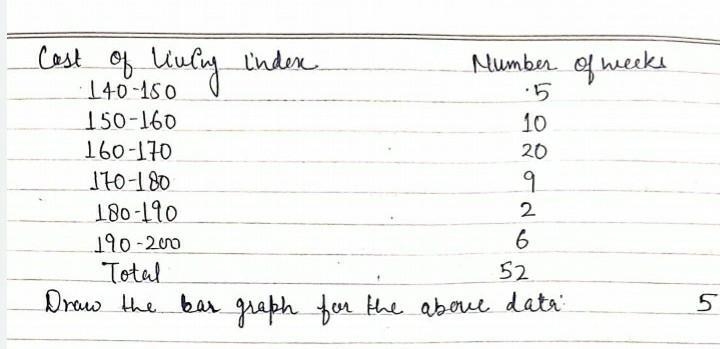 Cost of Living index Number of weeks
140-150 5
150-160 10
160-170 20
170-180 9
180-190 2
190-200 6
Total 52
Draw the bar graph for the above data: 5